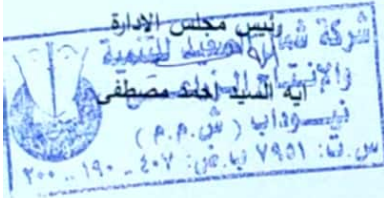 رئيس مجلس الإدارة
شركة شمال الصعيد للتنمية
والإنتاج
أية السيد احمد مصطفى
نيوداب (ش.م.م)
س.ت: ٧٩٥١ ب.ض: ٤٠٧ - ١٩٠ - ٢٠٠